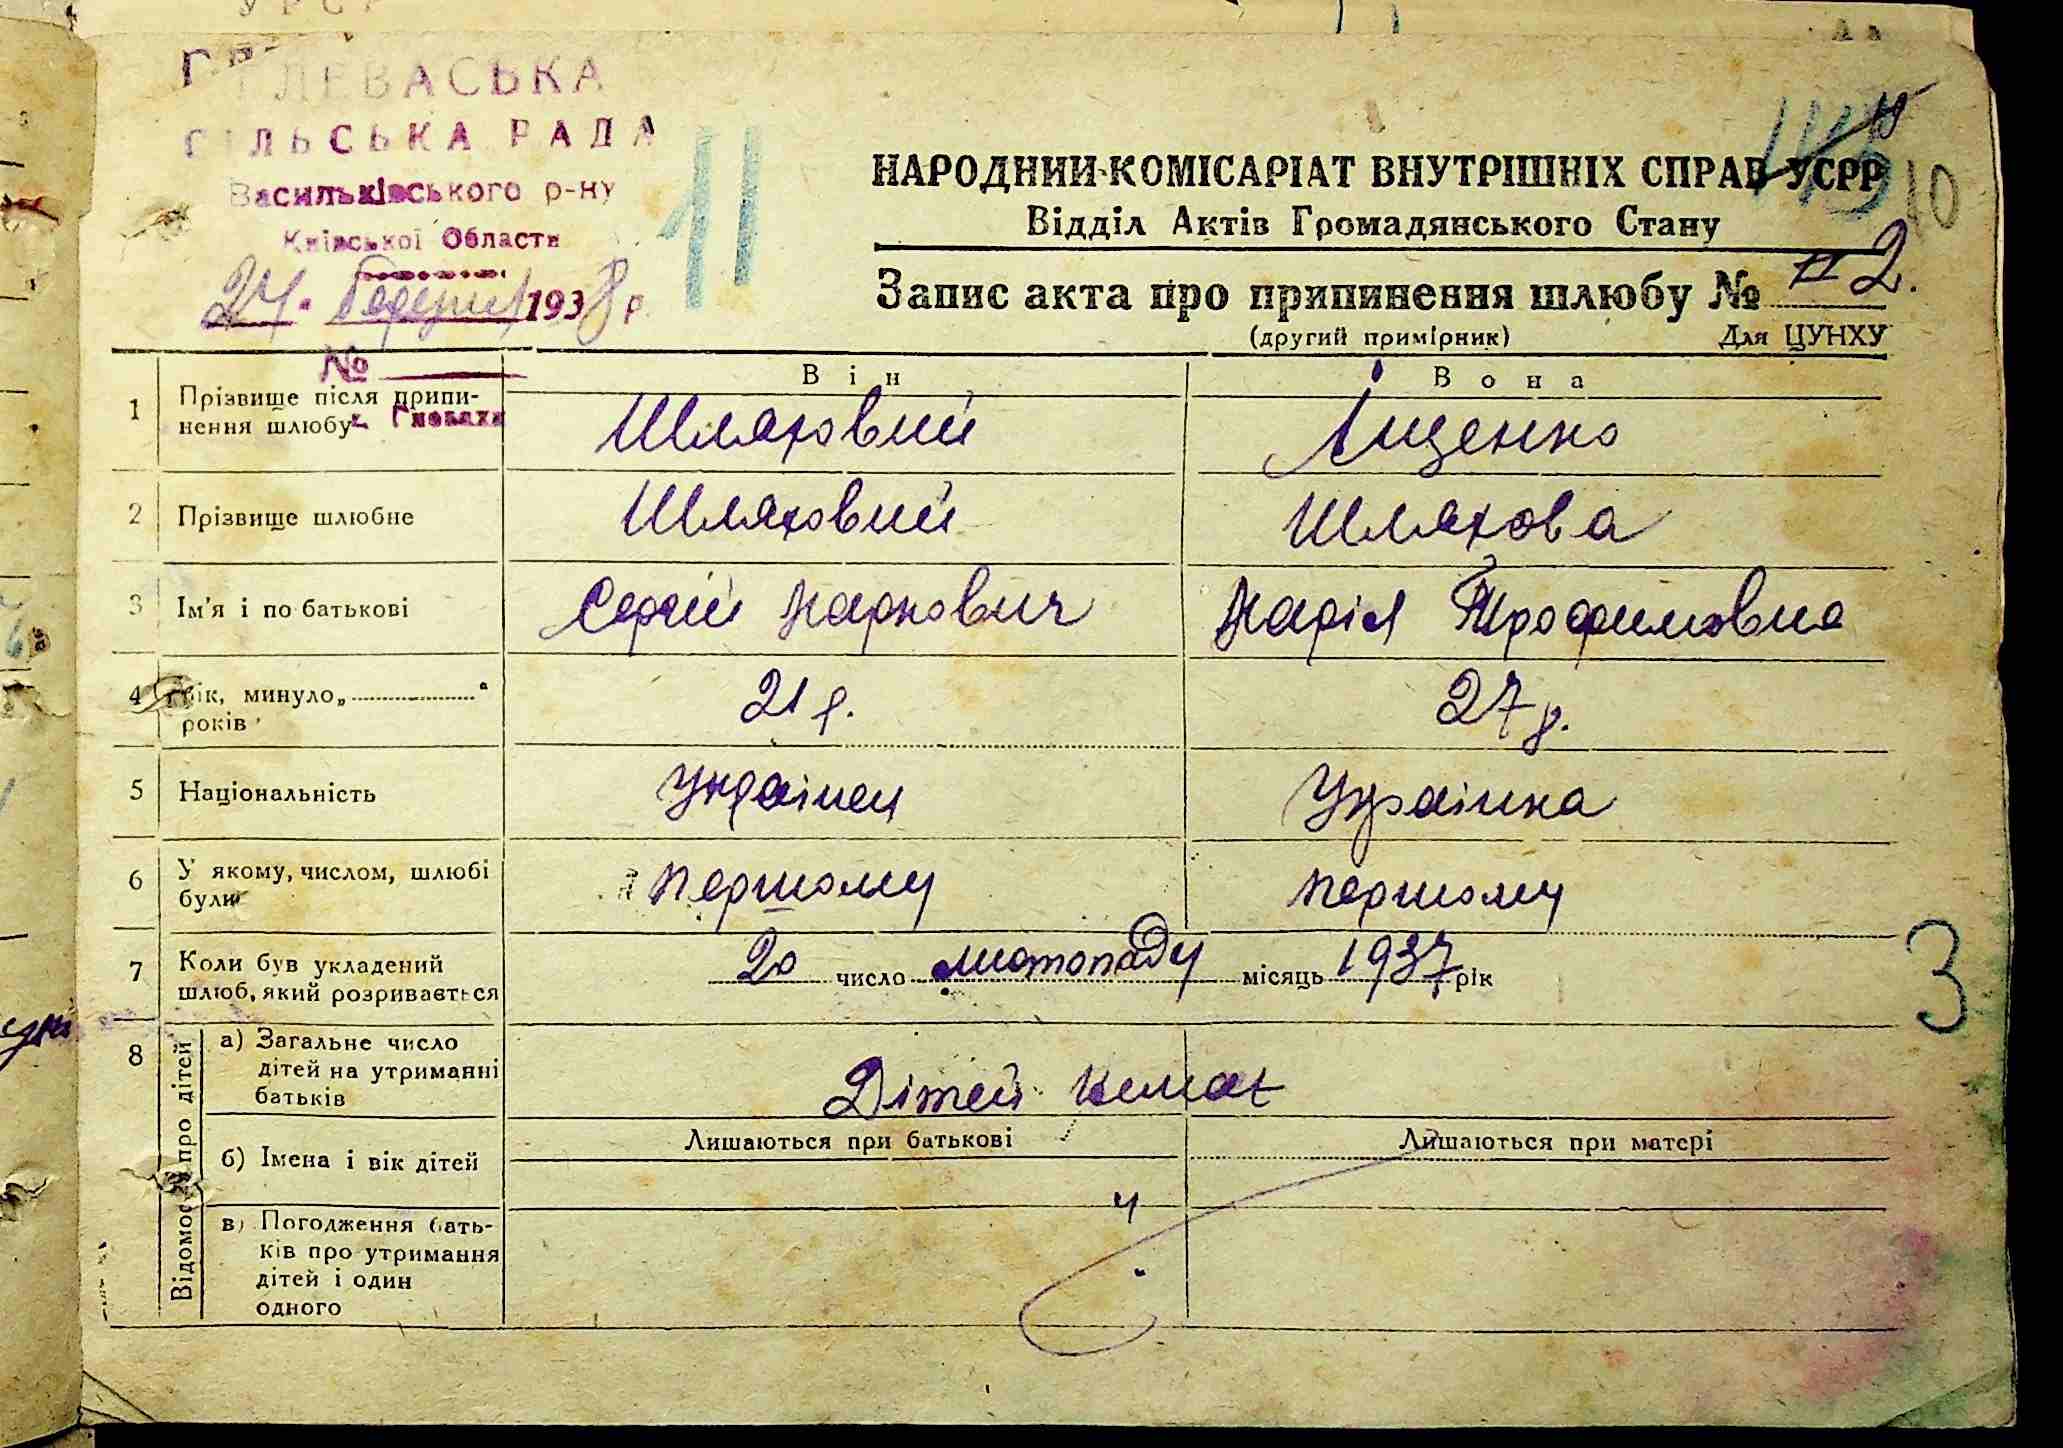 ГЛЕВАСЬКА
СІЛЬСЬКА РАДА
Васильківського р-ну
Київської Области
24 березня 1938 р.
№
с. Глеваха
11
10
НАРОДНИЙ КОМІСАРІАТ ВНУТРІШНІХ СПРАВ УСРР
Відділ Актів Громадянського Стану
Запис акта про припинення шлюбу № 2.
(другий примірник) Для ЦУНХУ
Він Вона
1 Прізвище після припи-
нення шлюбу Шляховий Іщенко
2 Прізвище шлюбне Шляховий Шляхова
3 Ім'я і по батькові Сергій Маркович Марія Трофимовна
4 рік, минуло „ “
років 21 р. 27 р.
5 Національність Українец Українка
6 У якому, числом, шлюбі
були первому первому
7 Коли був укладений
шлюб, який розривається 20 число листопаду місяць 1937 рік
3
8 Відомості про дітей
а) Загальне число
дітей на утриманні
батьків Дітей немає
Лишаються при батькові Лишаються при матері
б) Імена і вік дітей
в) Погодження бать-
ків про утримання
дітей і один
одного